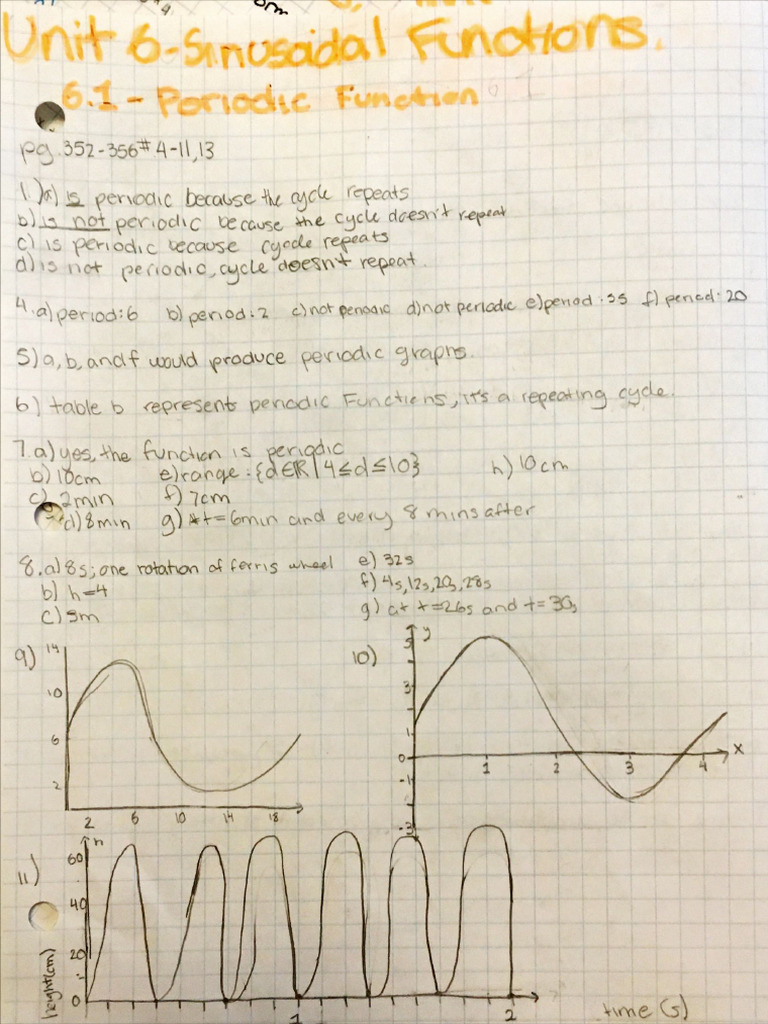 Unit 6-Sinusoidal Functions.
6.1 - Periodic Function
pg. 352-356 # 4-11, 13
1.) a) is periodic because the cycle repeats
b) is not periodic because the cycle doesn't repeat
c) is periodic because cycle repeats
d) is not periodic, cycle doesn't repeat.
4. a) period: 6 b) period: 2 c) not periodic d) not periodic e) period: 35 f) period: 20
5) a, b, and f would produce periodic graphs.
6) table b represent periodic Functions, it's a repeating cycle.
7. a) yes, the function is periodic
b) 10cm e) range: {d∈R | 4≤d≤10} h) 10cm
c) 2min f) 7cm
d) 8min g) At t=6min and every 8 mins after
8. a) 8s; one rotation of ferris wheel e) 32s
b) h=4 f) 4s, 12s, 20s, 28s
c) 5m g) at t=26s and t=30s
9) 14 10 6 2
2 6 10 14 18
10) y 5 3 1 0 -1 -3
1 2 3 4 x
11) h 60 40 20 0
height(cm)
1 2 time (s)